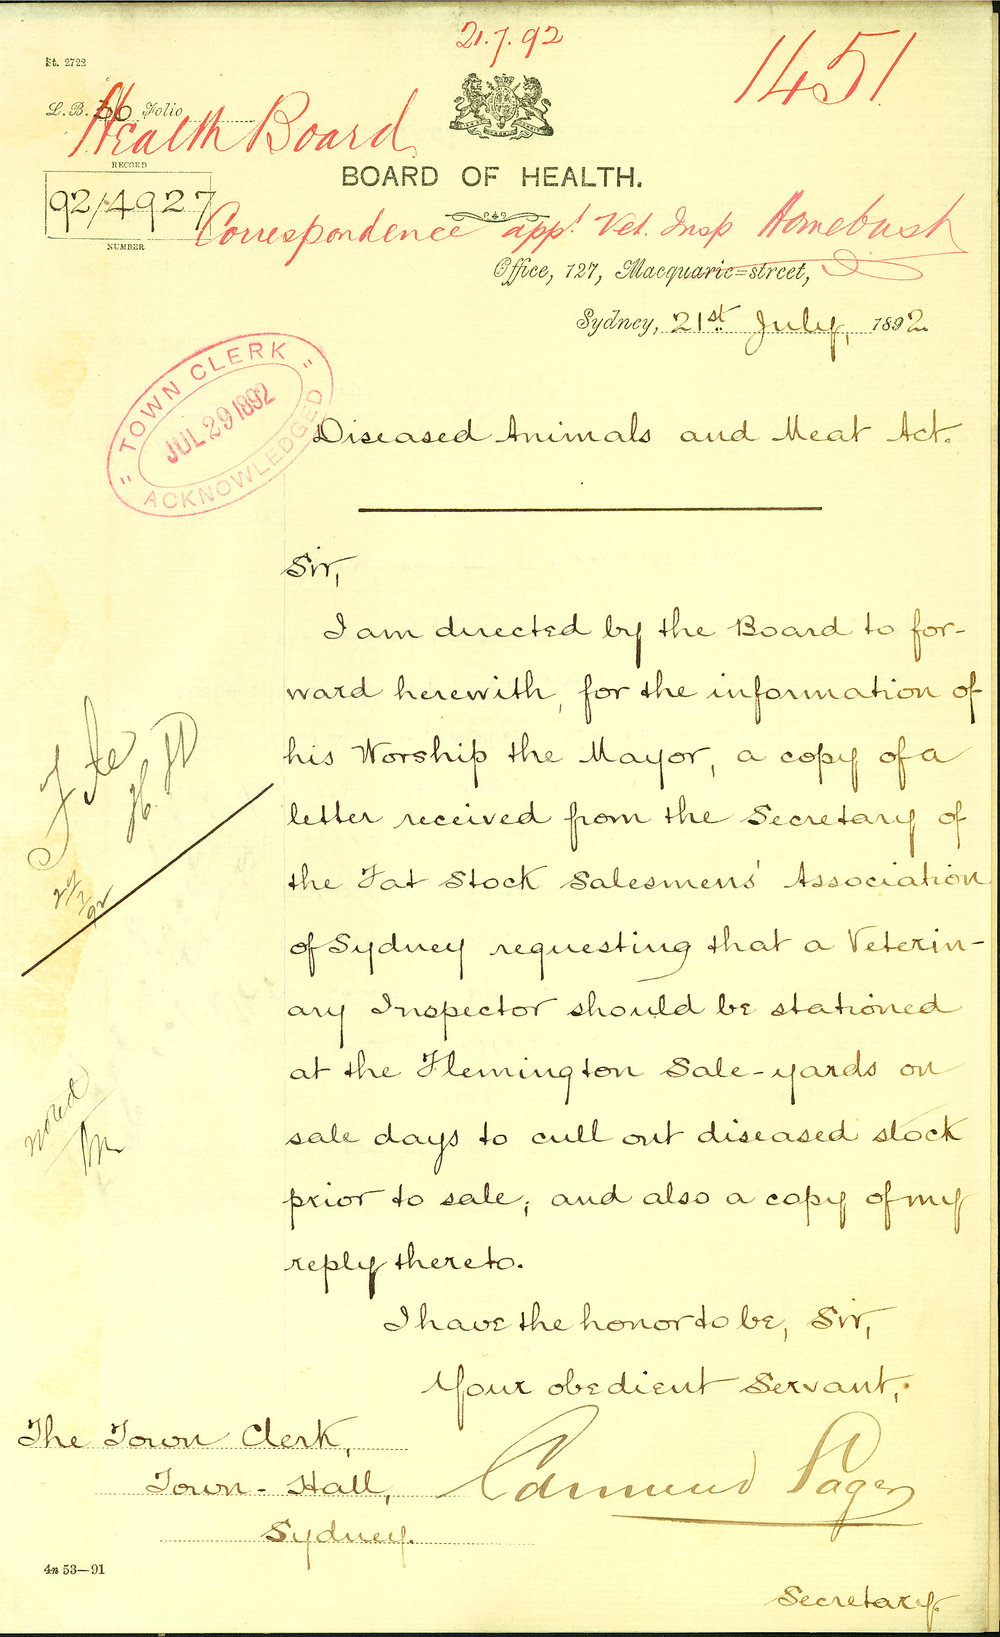 21.7.92
1451
St. 2722
L.B. 36 Folio
Health Board
RECORD
92/4927
NUMBER
BOARD OF HEALTH.
Correspondence appt. Vet. Insp Homebush
Office, 127, Macquarie=street,
Sydney, 21st July, 1892
"TOWN CLERK"
JUL 29 1892
ACKNOWLEDGED
Diseased Animals and Meat Act.
Sir,
I am directed by the Board to for-
ward herewith, for the information of
his Worship the Mayor, a copy of a
letter received from the Secretary of
the Fat Stock Salesmens' Association
of Sydney requesting that a Veterin-
ary Inspector should be stationed
at the Flemington Sale-yards on
sale days to cull out diseased stock
prior to sale; and also a copy of my
reply thereto.
I have the honor to be, Sir,
Your obedient Servant,
Edmund Sager
Secretary.
The Town Clerk,
Town-Hall,
Sydney.
4n 53—91
File
noted